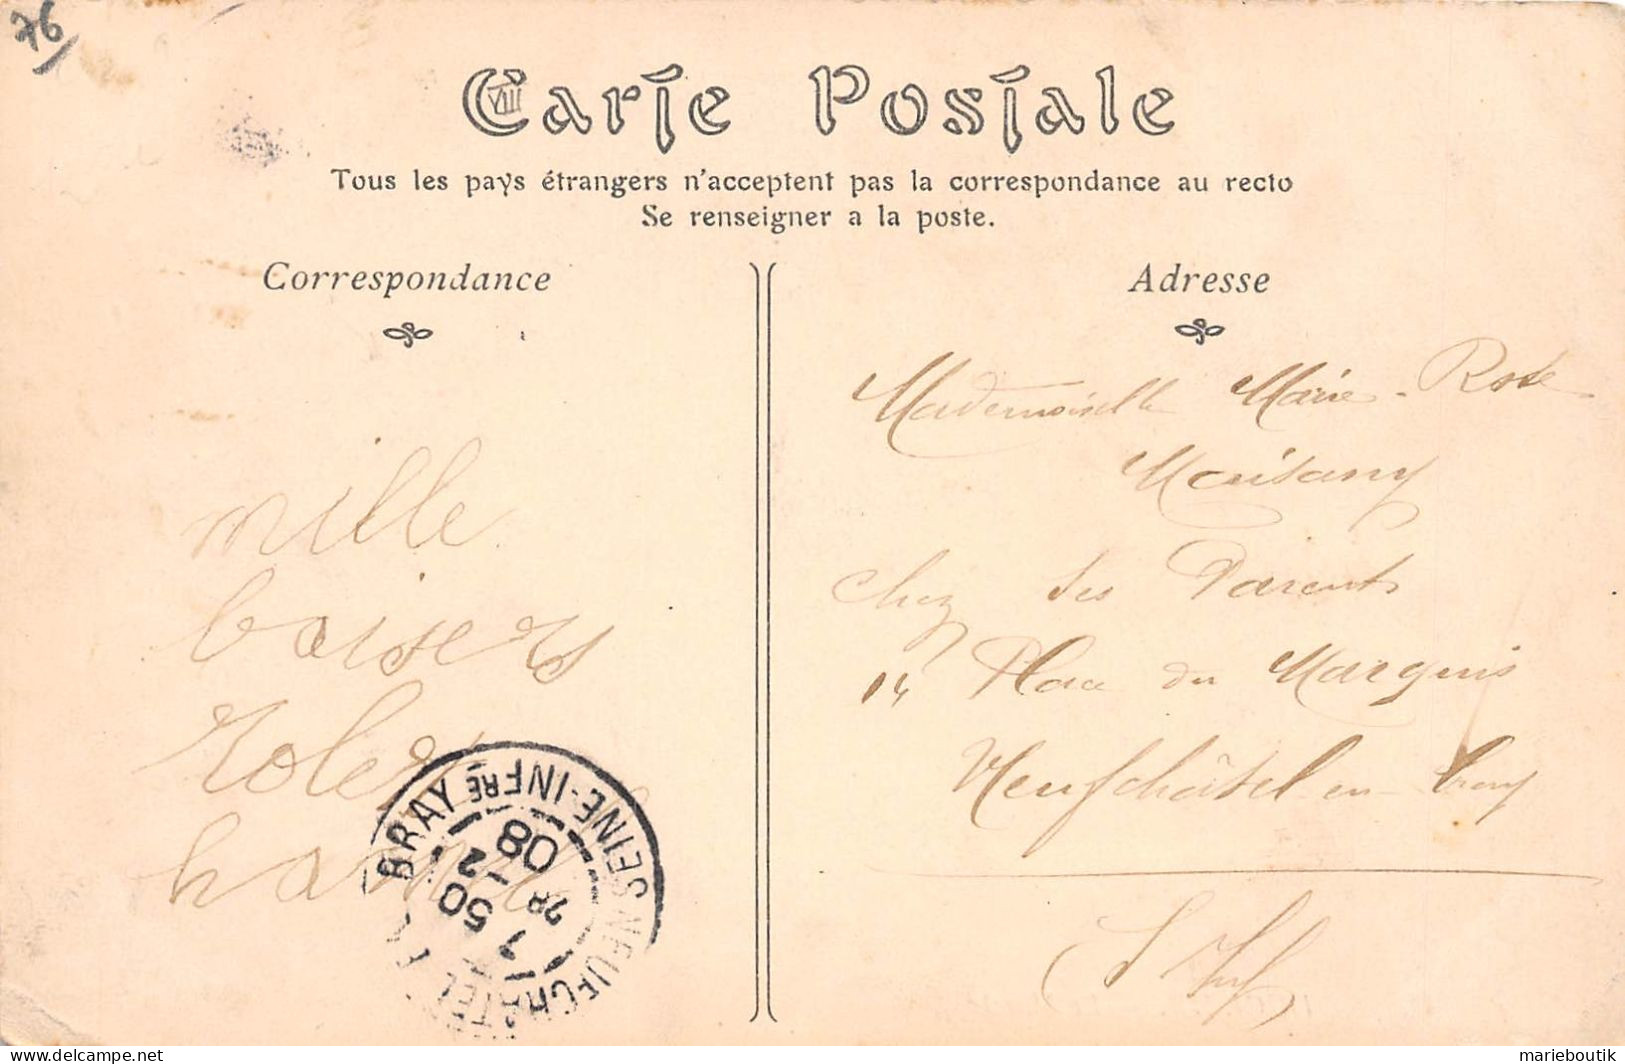 76
Carte Postale
VIII
Tous les pays étrangers n'acceptent pas la correspondance au recto
Se renseigner a la poste.
Correspondance
mille
baisers
Adresse
Mademoiselle Marie-Rose
chez ses Parents
14 Place du Marquis
Neufchâtel en bray
S Inf
NEUFCHATEL BRAY SEINE-INFRE
1 50
28 -2
08
marieboutik